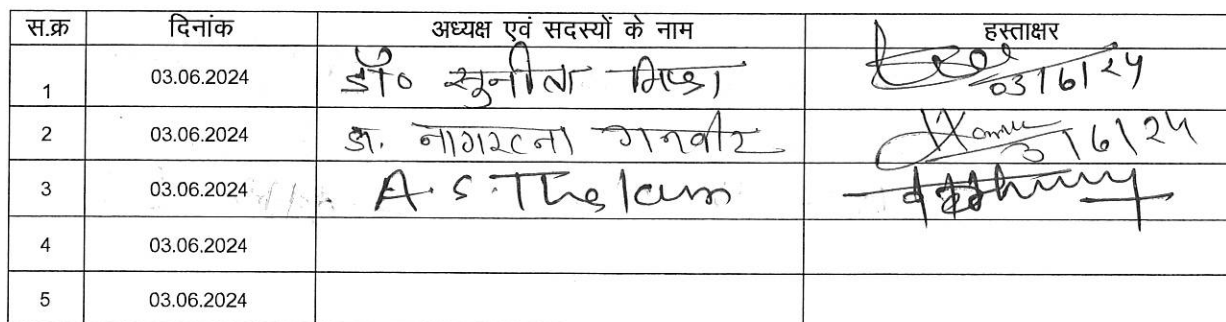 स.क्र दिनांक अध्यक्ष एवं सदस्यों के नाम हस्ताक्षर
1 03.06.2024 डॉ० सुनीता मिश्रा 03/6/24
2 03.06.2024 डा. नागरत्ना गनवीर 3/6/24
3 03.06.2024 A.S.
4 03.06.2024
5 03.06.2024